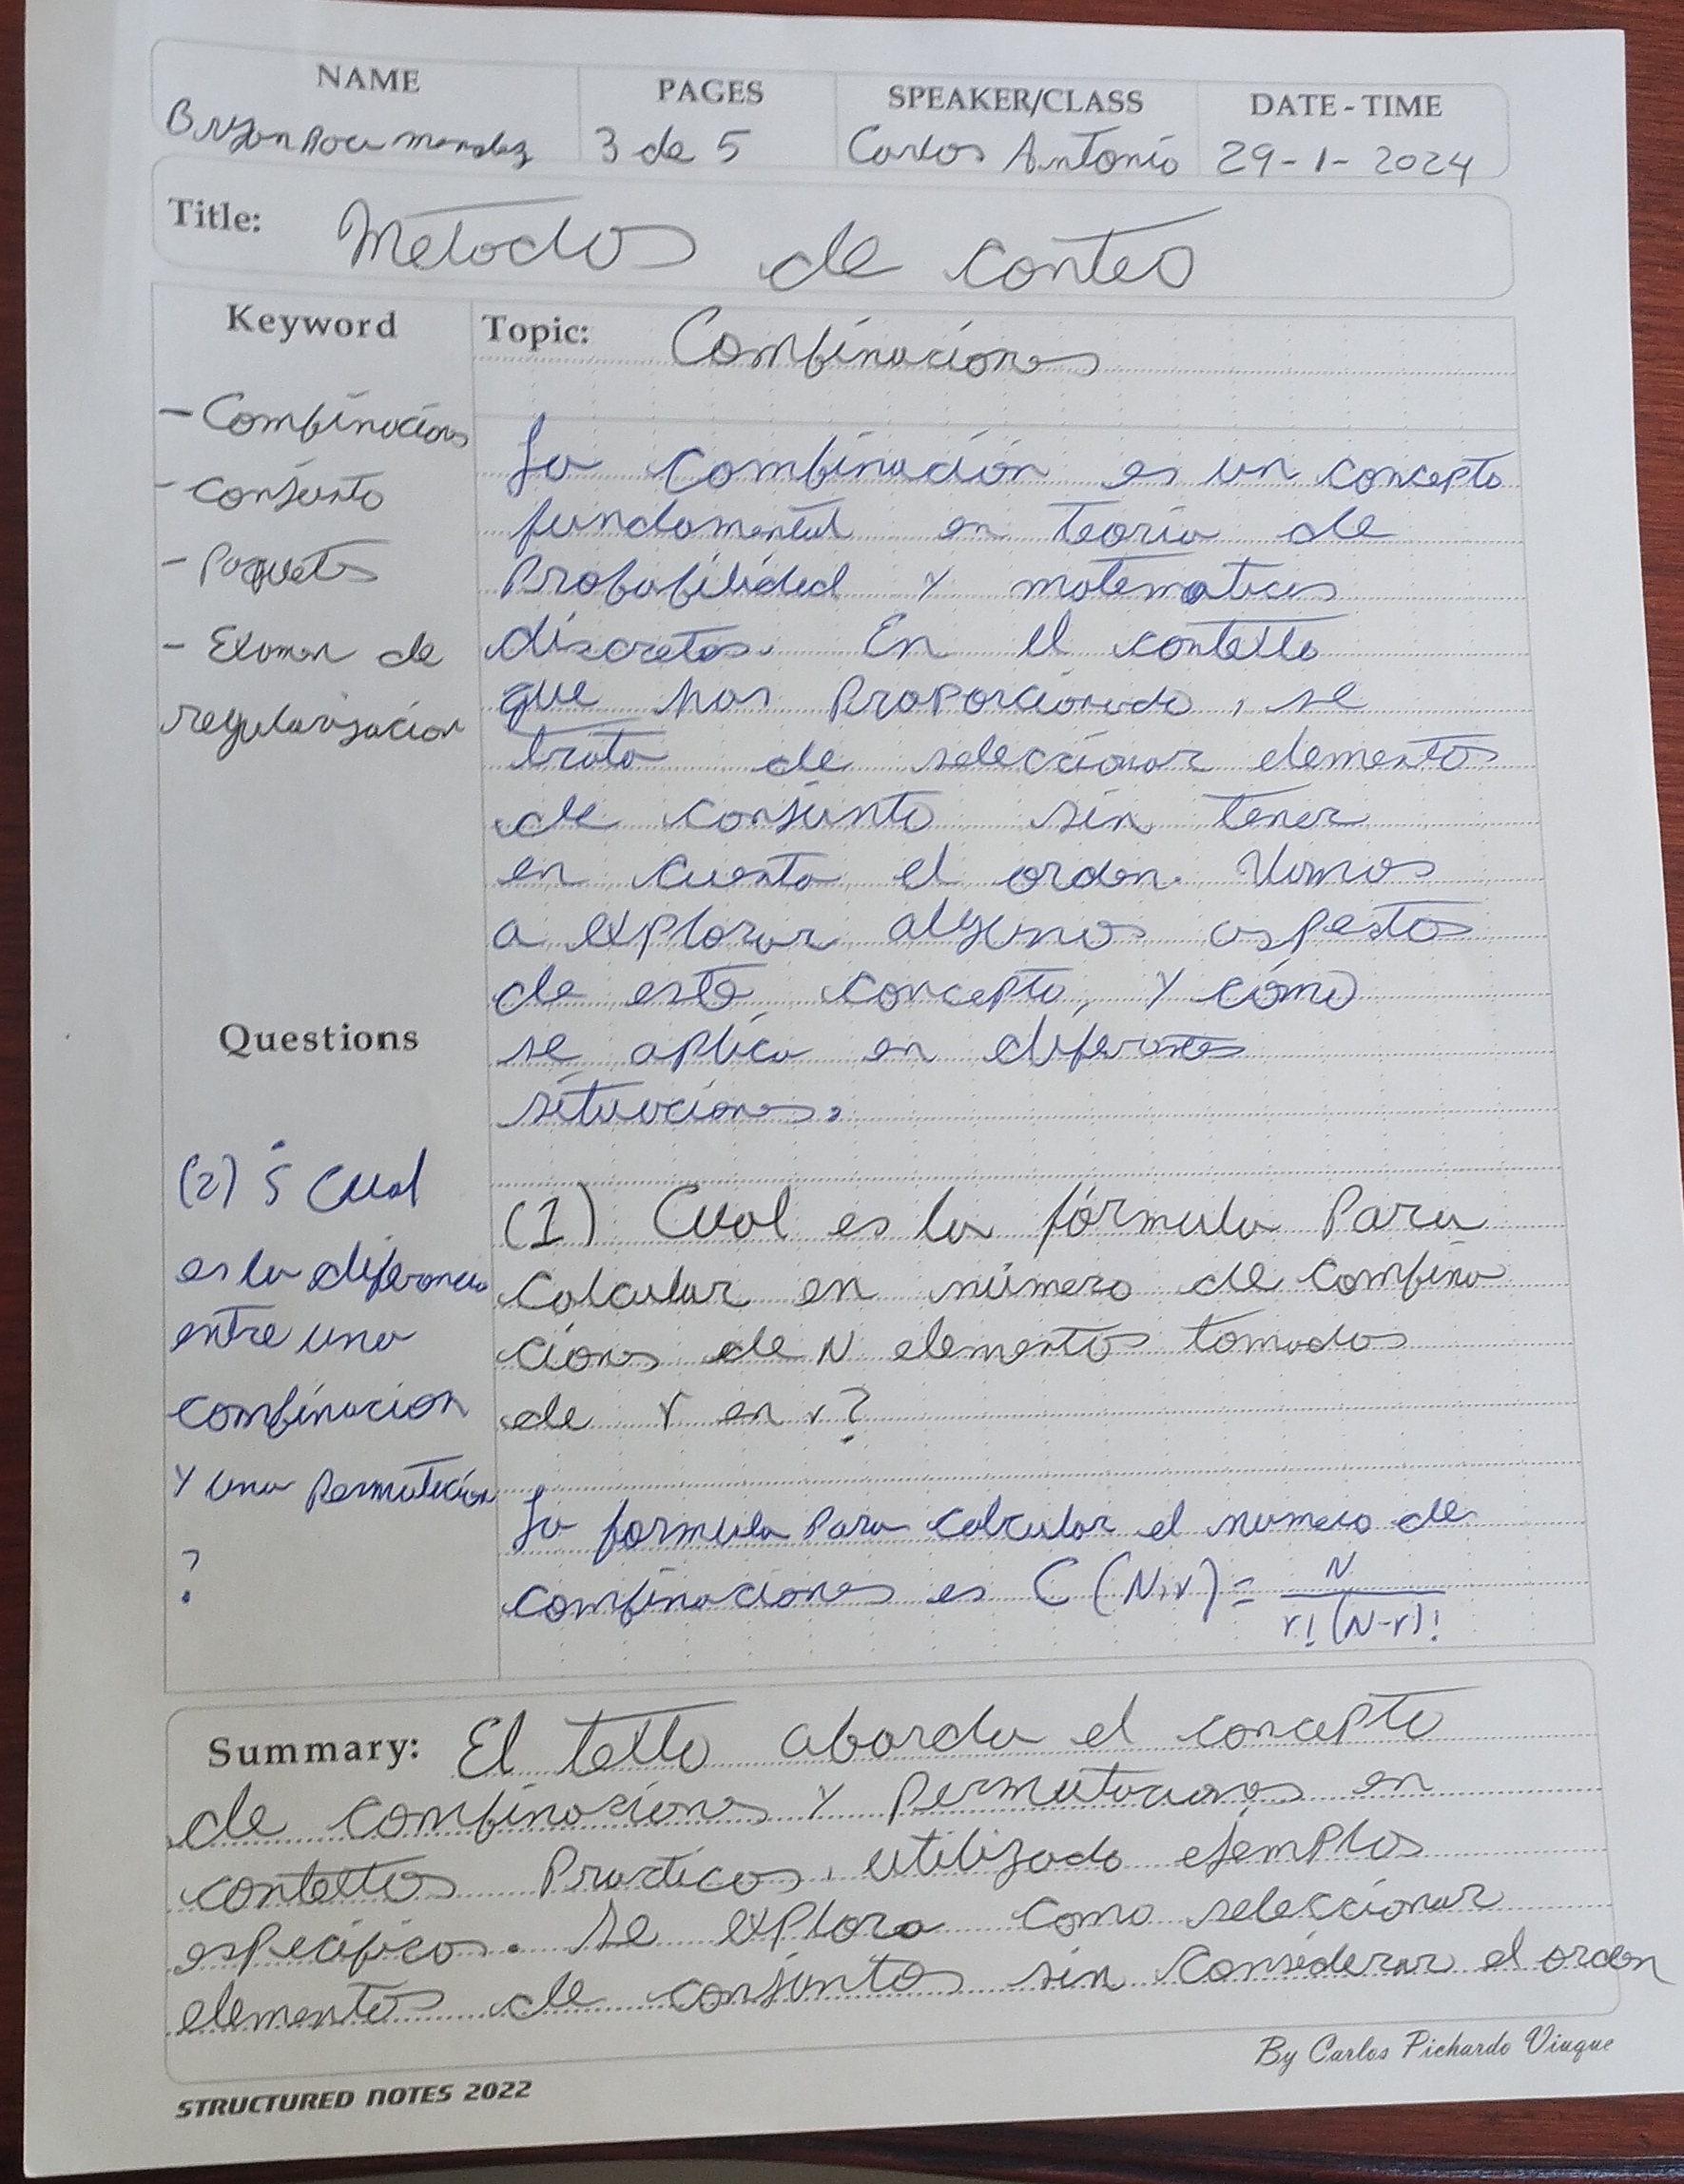 NAME PAGES SPEAKER/CLASS DATE-TIME
Bryan Roa mendez 3 de 5 Carlos Antonio 29-1-2024
Title: Metodos de conteo
Keyword
- Combinacions
- Conjunto
- Paquets
- Examen de
regularizacion
Topic: Combinaciones
La combinación es un concepto
fundamental en teoría de
Probabilidad y matematicas
discretas. En el contexto
que has Proporcionado, se
trata de seleccionar elementos
de conjunto sin tener
en cuenta el orden. Vamos
a explorar algunos aspectos
de este concepto, y cómo
se aplica en diferentes
situaciones.
Questions
(2) ¿ Cual
es la diferencia
entre una
combinacion
y una Permutación
?
(1) Cual es la fórmula Para
Calcular en número de combina
ciones de N elementos tomados
de r en r?
La formula Para calcular el numero de
combinaciones es C(N,r) = N / r! (N-r)!
Summary: El texto aborda el concepto
de combinaciones y Permutaciones en
contextos Practicos, utilizado ejemplos
especificos. Se explora como seleccionar
elementos de conjuntos sin considerar el orden
By Carlos Pichardo Viuque
STRUCTURED NOTES 2022